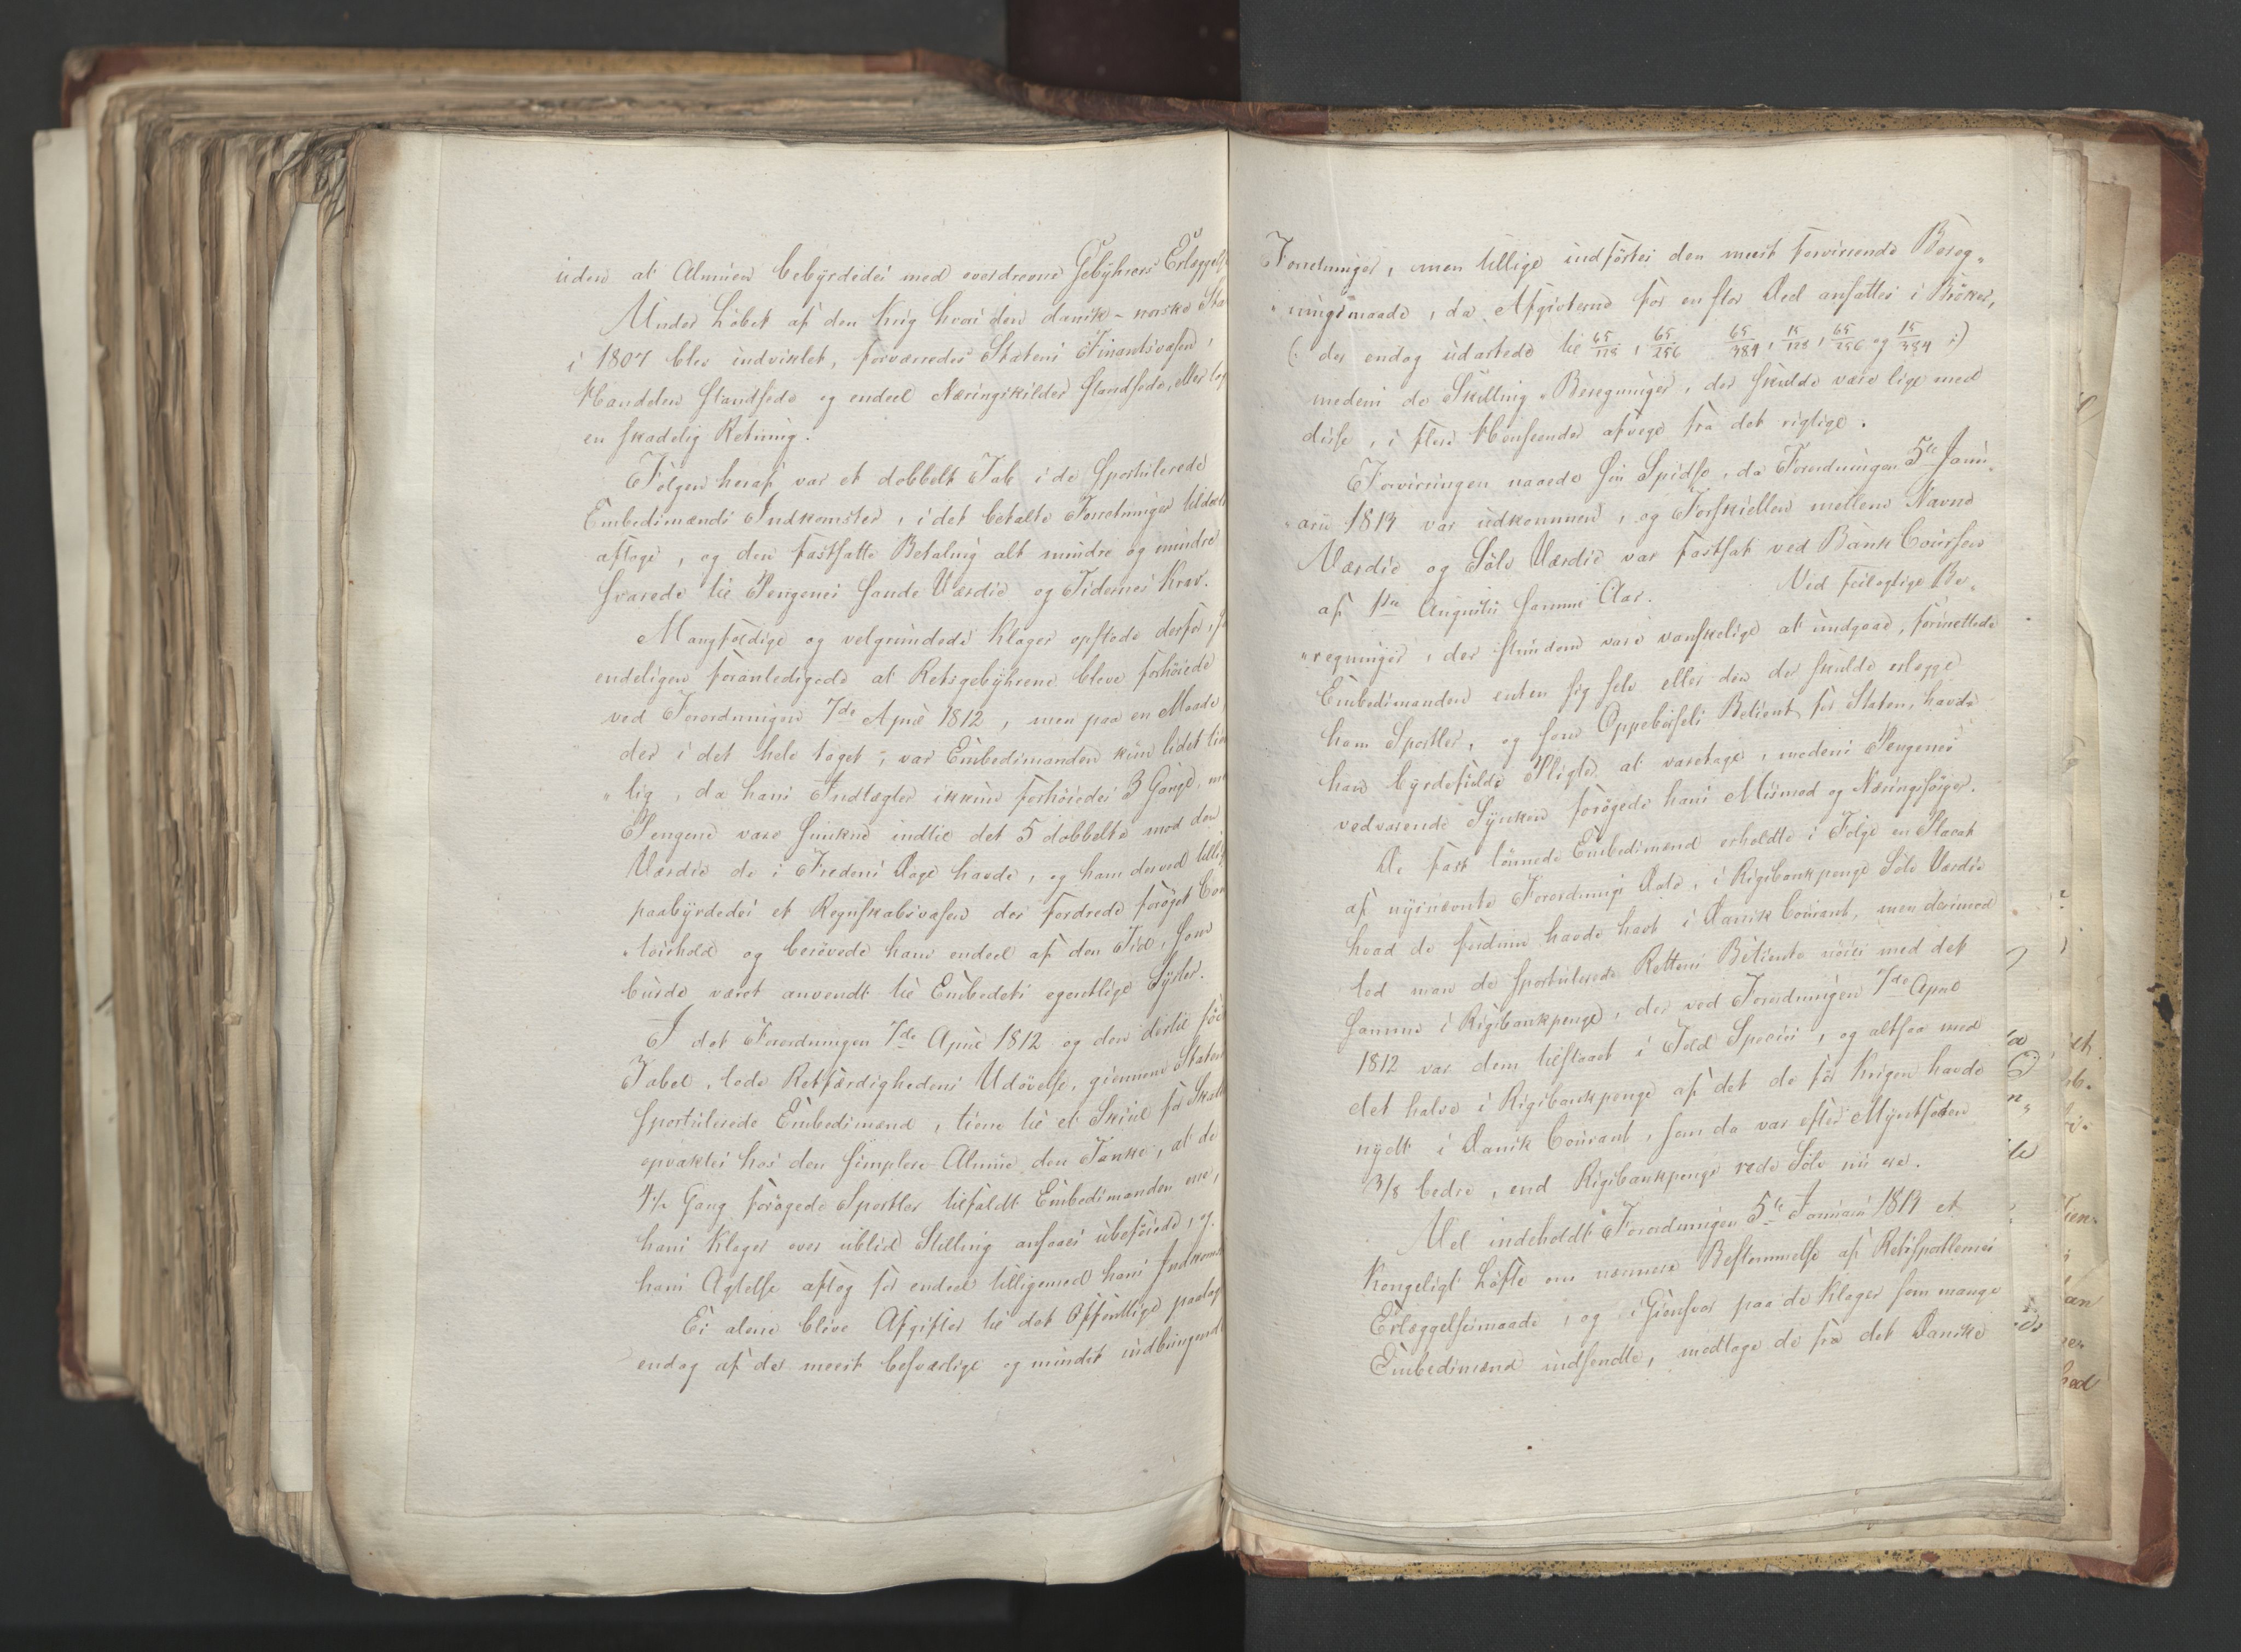 uden at Almuen bebyrdedes med overdrevne Gebyhrers
Under Löbet af den Krig hvori den dansk-norske
i 1807 blev indviklet, forværredes Statens Finantsvæsen,
Handelen standsede og endeel Næringskilder standsede, eller
en skadelig Retning.
Fölgen heraf var et dobbelt Tab i de Sportulerede
Embedsmænds Indkomster, idet betalte Forretninger
aftoge, og den fastsatte Betaling alt mindre og mindre
svarede til Pengenes sande Værdie og Tidernes Krav.
Mangfoldige og velgrundede Klager opstode derfor,
endeligen foranledigede at Retsgebyhrene bleve forhöiede
ved Forordningen 7de April 1812, men paa en Maade,
der i det hele taget, var Embedsmanden kun lidet
"lig, da hans Indtægter ikkun forhöiedes 3 Gange,
Pengene vare sunkne indtil det 5 dobbelte mod den
Værdie de i Fredens Dage havde, og ham derved
paabyrdedes et Regnskabsvæsen der fordrede foröget
"toirhold og berövede ham endeel af den Tid, som
burde været anvendt til Embedets egentlige Sysler.
I det Forordningen 7de April 1812 og den dertil
Tabel, lode Retfærdighedens Udövelse, giennem Statens
sportulerede Embedsmænd, tiene til et Skiul for
opvaktes hos den simplere Almue den Tanke, at de
4½ Gang forögede Sportler tilfaldt Embedsmanden ene,
hans Klager over ublid Stilling ansaaes ubeföiede, og
hans Agtelse aftog for endeel tilligemed hans
Ei alene bleve Afgifter til det Offentlige
endog af de meest besværlige og mindst indbringende
Forretninger, men tillige indförtes den meest forvirrende Bereg„
"ningsmaade, da Afgivterne for en stor Deel ansattes i Bröker,
(: der endog udartede til 65/128, 65/256 65/384, 15/128, 65/256 og 15/384 :)
medens de Skilling-Beregninger, der skulde være lige med
disse, i flere Henseender afvege fra det rigtige.
Forvirringen naaede sin Spidse, da Forordningen 5te Janu„
"arii 1813 var udkommen, og Forskiellen mellem Navne
Værdie og Sölv Værdie var fastsat ved Bank Coursen
af 1ste Augusti samme Aar. Ved feilagtige Be„
"regninger, der stundom vare vanskelige at undgaae, forurettede
Embedsmanden enten sig selv eller den der skulde erlægge
ham Sportler, og som Oppebörsels Betient for Staten, havde
han byrdefulde Pligter at varetage, medens Pengenes
vedvarende Synken forögede hans Mismod og Næringssorger.
De fast lönnede Embedsmænd erholdte i Fölge en Placat
af nysnævnte Forordnings Dato, i Rigsbankpenge Sölv Værdie
hvad de fordum havde havt i Dansk Courant, men derimod
lod man de sportulerede Rettens Betiente nöies med det
samme i Rigsbankpenge, der ved Forordningen 7de April
1812 var dem tilstaaet i Species, og altsaa med
det halve i Rigsbankpenge af det de för Krigen havde
nydt i Dansk Courant, som da var efter Myntfoden
3/8 bedre, end Rigsbankpenge rede Sölv nu ere.
Vel indeholdt Forordningen 5te Januarii 1813 et
Kongeligt Löfte om nærmere Bestemmelse af Retssportlernes
Erlæggelsesmaade, og i Giensvar paa de Klager som mange
Embedsmænd indsendte, modtoge de fra det Danske